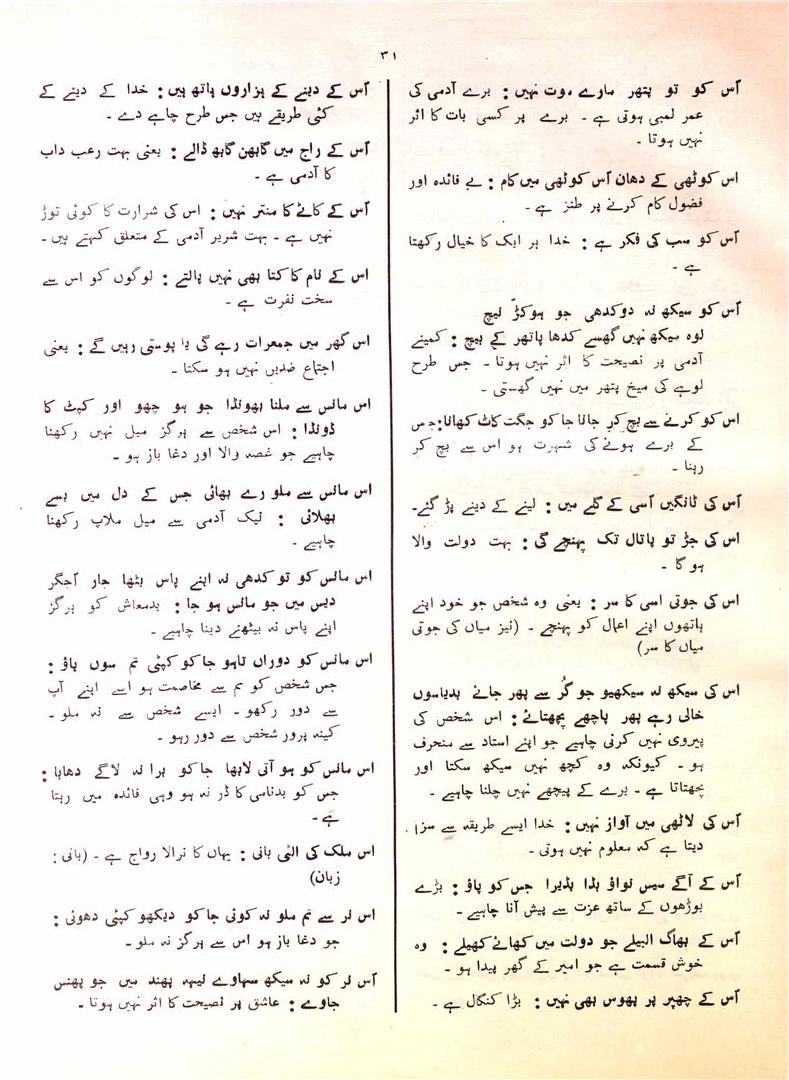 ۳۱
اُس کو تو پتھر مارے موت نہیں : برے آدمی کی
عمر لمبی ہوتی ہے ۔ برے پر کسی بات کا اثر
نہیں ہوتا ۔
اس کوٹھی کے دھان اُس کوٹھی میں کام : بے فائدہ اور
فضول کام کرنے پر طنز ہے ۔
اُس کو سب کی فکر ہے : خدا ہر ایک کا خیال رکھتا
ہے ۔
اُس کو سیکھ نہ دو کدھی جو ہو کڑّ نیچ
لوہ میکھ نہیں گھسے کدھا پاتھر کے بیچ : کمینے
آدمی پر نصیحت کا اثر نہیں ہوتا ۔ جس طرح
لوہے کی میخ پتھر میں نہیں گھستی ۔
اس کو کرنے سے بچ کر جانا جا کو جگت کاٹ کھانا : جس
کے برے ہونے کی شہرت ہو اس سے بچ کر
رہنا ۔
اُس کی ٹانگیں اُسی کے گلے میں : لینے کے دینے پڑ گئے ۔
اس کی جڑ تو پاتال تک پہنچے گی : بہت دولت والا
ہو گا ۔
اس کی جوتی اسی کا سر : یعنی وہ شخص جو خود اپنے
ہاتھوں اپنے اعمال کو پہنچے ۔ (نیز میاں کی جوتی
میاں کا سر)
اس کی سیکھ نہ سیکھیو جو گُر سے پھر جائے بدیاسوں
خالی رہے پھر پاچھے پچھتائے : اس شخص کی
پیروی نہیں کرنی چاہیے جو اپنے استاد سے منحرف
ہو ۔ کیونکہ وہ کچھ نہیں سیکھ سکتا اور
پچھتاتا ہے ۔ برے کے پیچھے نہیں چلنا چاہیے ۔
اُس کی لاٹھی میں آواز نہیں : خدا ایسے طریقہ سے سزا
دیتا ہے کہ معلوم نہیں ہوتی ۔
اُس کے آگے سیس نواؤ بڈا بڈیرا جس کو پاؤ : بڑے
بوڑھوں کے ساتھ عزت سے پیش آنا چاہیے ۔
اُس کے بھاگ البیلے جو دولت میں کھائے کھیلے : وہ
خوش قسمت ہے جو امیر کے گھر پیدا ہو ۔
اُس کے چھپر پر پھوس بھی نہیں : بڑا کنگال ہے ۔
اُس کے دینے کے ہزاروں ہاتھ ہیں : خدا کے دینے کے
کئی طریقے ہیں جس طرح چاہے دے ۔
اُس کے راج میں گابھن گابھ ڈالے : یعنی بہت رعب داب
کا آدمی ہے ۔
اُس کے کاٹے کا منتر نہیں : اس کی شرارت کا کوئی توڑ
نہیں ہے ۔ بہت شریر آدمی کے متعلق کہتے ہیں ۔
اس کے نام کا کتا بھی نہیں پالتے : لوگوں کو اس سے
سخت نفرت ہے ۔
اس گھر میں جمعرات رہے گی یا پوستی رہیں گے : یعنی
اجتماع ضدیں نہیں ہو سکتا ۔
اس مانس سے ملنا بھونڈا جو ہو چھو اور کپٹ کا
ڈونڈا : اس شخص سے ہرگز میل نہیں رکھنا
چاہیے جو غصہ والا اور دغا باز ہو ۔
اس مانس سے ملو رے بھائی جس کے دل میں بسے
بھلائی : نیک آدمی سے میل ملاپ رکھنا
چاہیے ۔
اس مانس کو تو کدھی نہ اپنے پاس بٹھا جار اُجگر
دیس میں جو مانس ہو جا : بدمعاش کو ہرگز
اپنے پاس نہ بیٹھنے دینا چاہیے ۔
اُس مانس کو دوراں تاہو جا کو کپٹی تم سوں پاؤ :
جس شخص کو تم سے مخاصمت ہو اسے اپنے آپ
سے دور رکھو ۔ ایسے شخص سے نہ ملو ۔
کینہ پرور شخص سے دور رہو ۔
اس مانس کو ہو آتی لابھا جا کو برا نہ لاگے دھابا :
جس کو بدنامی کا ڈر نہ ہو وہی فائدہ میں رہتا
ہے ۔
اس ملک کی الٹی بانی : یہاں کا نرالا رواج ہے ۔ (بانی :
زبان)
اس نر سے تم ملو نہ کوئی جا کو دیکھو کپٹی دھوئی :
جو دغا باز ہو اس سے ہرگز نہ ملو ۔
اُس نر کو نہ سیکھ سہاوے نیہہ پھند میں جو پھنس
جاوے : عاشق پر نصیحت کا اثر نہیں ہوتا ۔